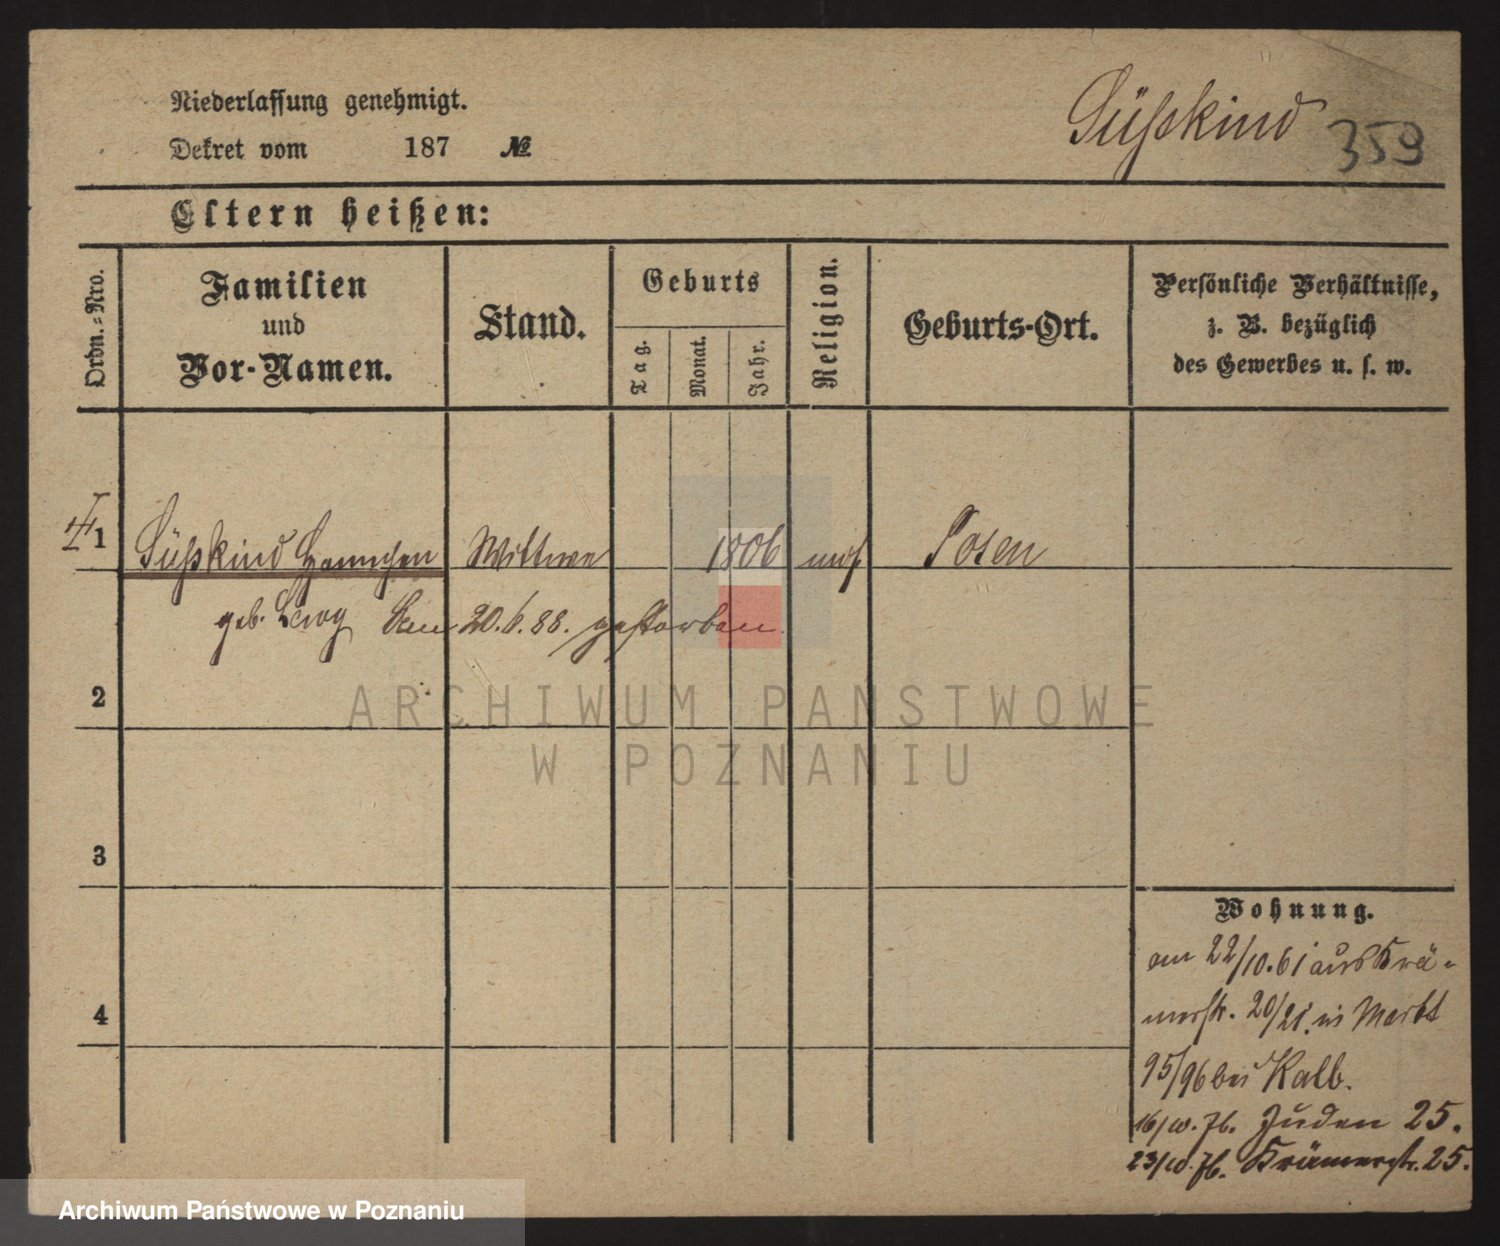 Niederlassung genehmigt.
Dekret vom 187 №
Süßkind 359
Eltern heißen:
Ordn.-Nro.
Familien
und
Vor-Namen.
Stand.
Geburts
Tag.
Monat.
Jahr.
Religion.
Geburts-Ort.
Persönliche Verhältnisse,
z. B. bezüglich
des Gewerbes u. s. w.
1 Süßkind Hannchen Wittwe 1806 mos Posen
geb. Lewy Am 20.6.88. gestorben.
2
3
4
Wohnung.
am 22/10.61 aus Krä-
merstr. 20/21. in Markt
95/96 bei Kalb.
16/10. 76. Juden 25.
23/10. 76. Krämerstr. 25.
ARCHIWUM PAŃSTWOWE
W POZNANIU
Archiwum Państwowe w Poznaniu